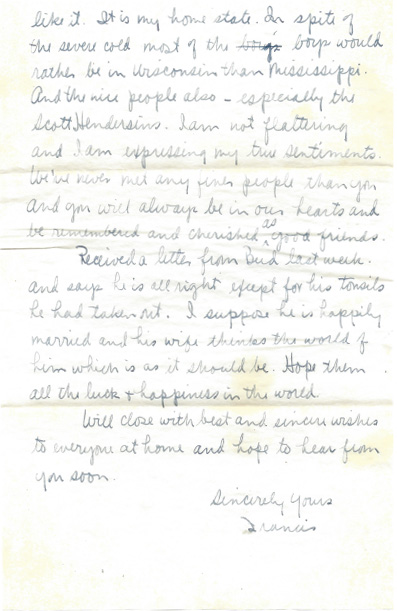 like it. It is my home state. In spite of
the severe cold most of the boys would
rather be in Wisconsin than Mississippi.
And the nice people also - especially the
Scott Hendersins. I am not flattering
and I am expressing my true sentiments.
We've never met any finer people than you
and you will always be in our hearts and
be remembered and cherished as good friends.
Received a letter from Bud last week
and says he is all right except for his tonsils
he had taken out. I suppose he is happily
married and his wife thinks the world of
him which is as it should be. Hope them
all the luck + happiness in the world.
Will close with best and sincere wishes
to everyone at home and hope to hear from
you soon.
Sincerely Yours
Francis